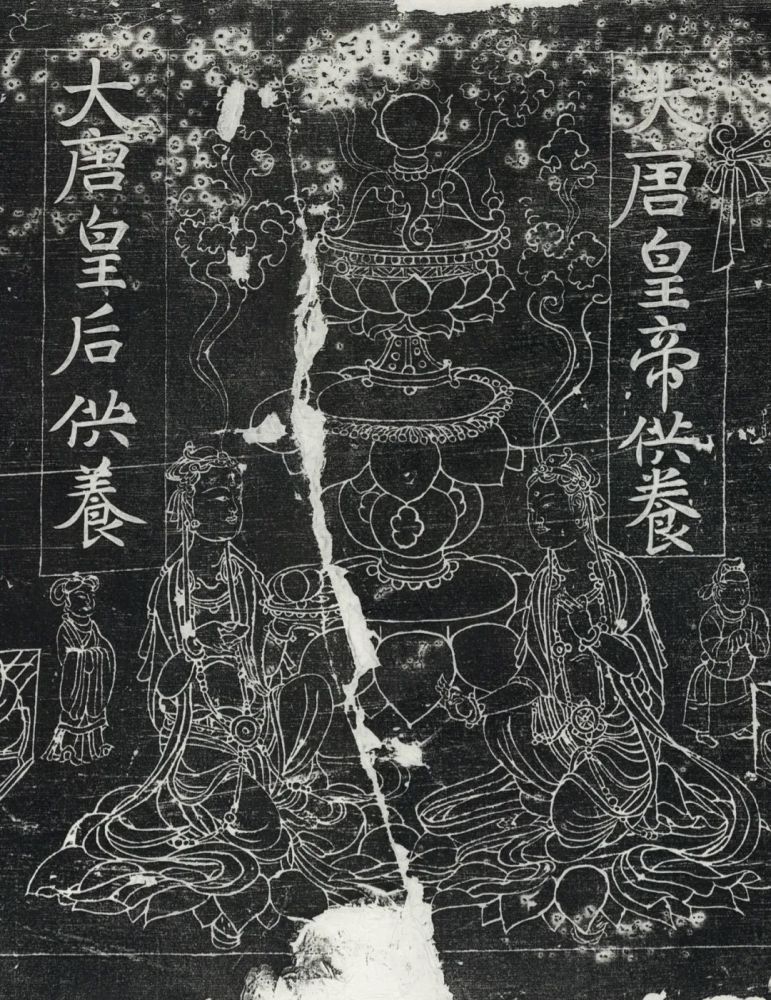 大唐皇帝供養
大唐皇后供養